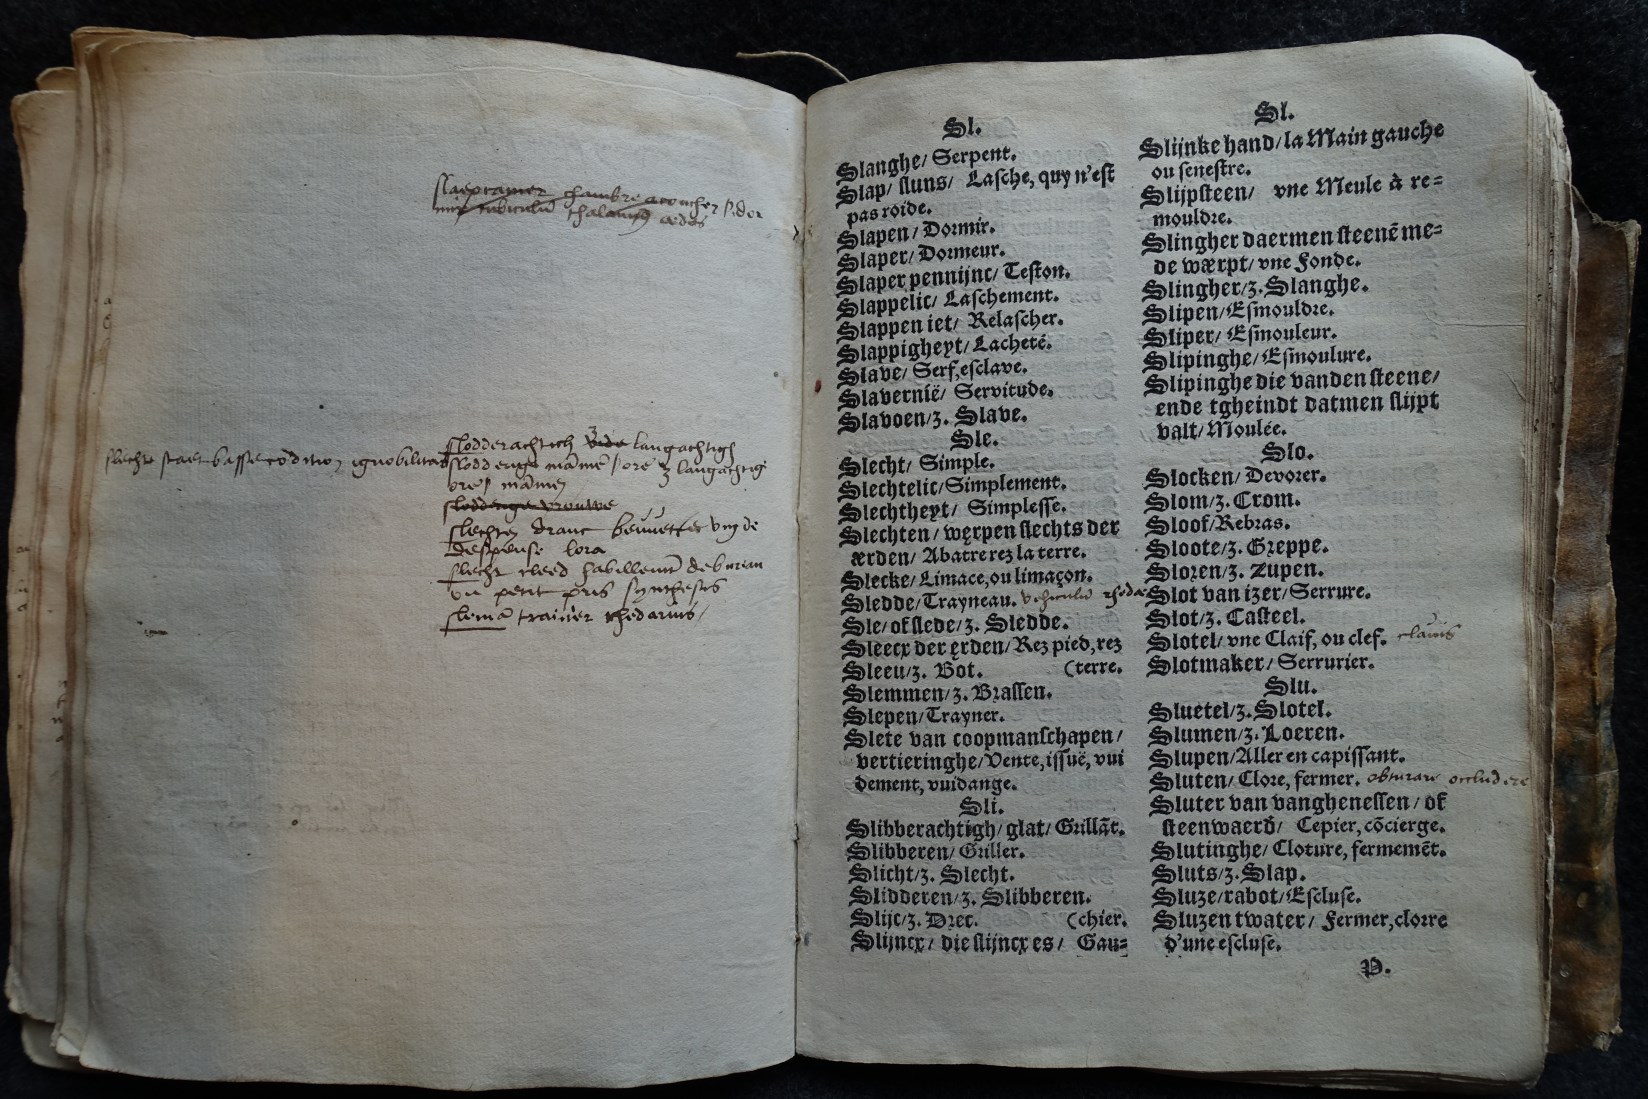 slaepcamer chambre a coucher
cubiculū thalamus aedes
slodderachtich vide langachtigh
slecht staet basse cōditiō ignobilitas
slodderige vrouwe
slechten dranc beuvette vin de
despense lora
slecht cleed habillemēt de bureau
ou petit pris synthesis
trainer rhedarius
Sl.
Slanghe/ Serpent.
Slap/ sluns/ Lasche, quy n'est
pas roide.
Slapen/ Dormir.
Slaper/ Dormeur.
Slaper pennijnc/ Teston.
Slappelic/ Laschement.
Slappen iet/ Relascher.
Slappigheyt/ Lacheté.
Slave/ Serf, esclave.
Slavernië/ Servitude.
Slavoen/z. Slave.
Sle.
Slecht/ Simple.
Slechtelic/Simplement.
Slechtheyt/ Simplesse.
Slechten/ węrpen slechts der
ærden/ Abatre rez la terre.
Slecke/Limace, ou limaçon.
Sledde/Trayneau. vehiculū rheda
Sle/ of slede/z. Sledde.
Sleecx der ęrden/Rez pied, rez
Sleeu/z. Bot. (terre.
Slemmen/z. Brassen.
Slepen/Trayner.
Slete van coopmanschapen/
vertieringhe/Vente, issuë, vui
dement, vuidange.
Sli.
Slibberachtigh/ glat/ Grillāt.
Slibberen/ Griller.
Slicht/z. Slecht.
Slidderen/z. Slibberen.
Slijc/z. Drec. (chier.
Slijncx/ die slijncx es/ Gau=
Sl.
Slijnke hand/la Main gauche
ou senestre.
Slijpsteen/ vne Meule à re=
mouldre.
Slingher daermen steenē me=
de wærpt/ vne Fonde.
Slingher/z. Slanghe.
Slipen/Esmouldre.
Sliper/ Esmouleur.
Slipinghe/Esmoulure.
Slipinghe die vanden steene/
ende tgheindt datmen slijpt
valt/Moulée.
Slo.
Slocken/ Devorer.
Slom/z. Crom.
Sloof/Rebras.
Sloote/z. Greppe.
Sloren/z. Zupen.
Slot van izer/Serrure.
Slot/z. Casteel.
Slotel/ vne Claif, ou clef. clavis
Slotmaker/ Serrurier.
Slu.
Sluetel/z. Slotel.
Slumen/z. Loeren.
Slupen/Aller en capissant.
Sluten/ Clore, fermer. obturare occludere
Sluter van vanghenessen/ of
steenwaerd/ Cepier, cōcierge.
Slutinghe/ Cloture, fermemēt.
Sluts/z. Slap.
Sluze/rabot/Escluse.
Sluzen twater/ Fermer, clorre
d'une escluse.
P.